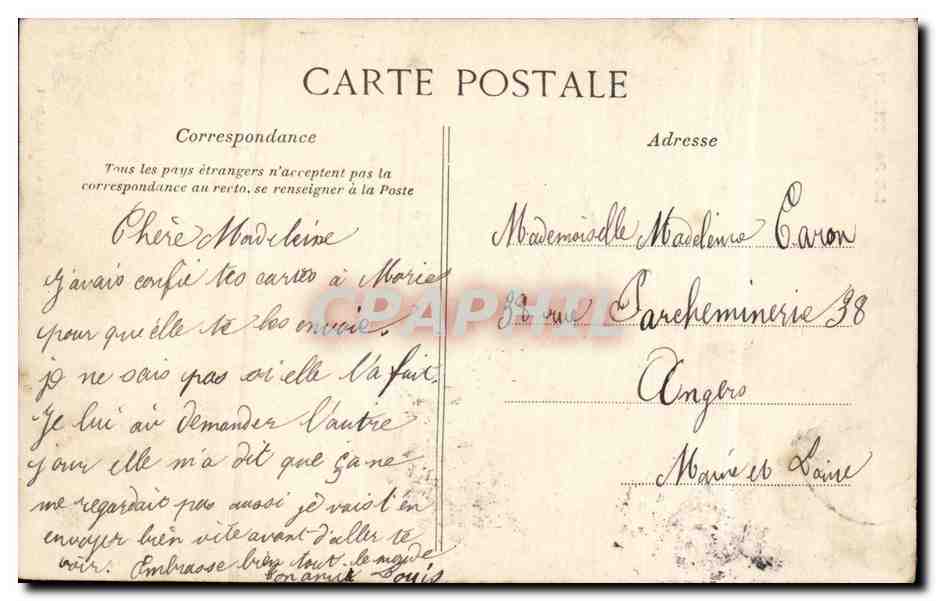 CARTE POSTALE
Correspondance
Tous les pays étrangers n'acceptent pas la
correspondance au recto, se renseigner à la Poste
Chère Madeleine
j'avais confié tes cartes à Marie
pour qu'elle te les envoie.
je ne sais pas si elle l'a fait.
Je lui ai demander l'autre
jour elle m'a dit que ça ne
me regardait pas aussi je vais t'en
envoyer bien vite avant d'aller te
voir. Embrasse bien tout le monde
Ton ami Louis
Adresse
Mademoiselle Madeleine Caron
38 rue Parcheminerie 38
Angers
Maine et Loire
CPAPHIL